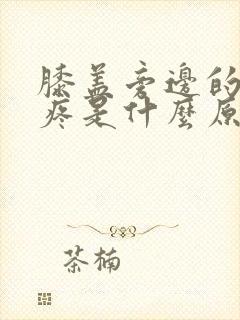 膝盖旁边的
疼是什麼原
茶楠